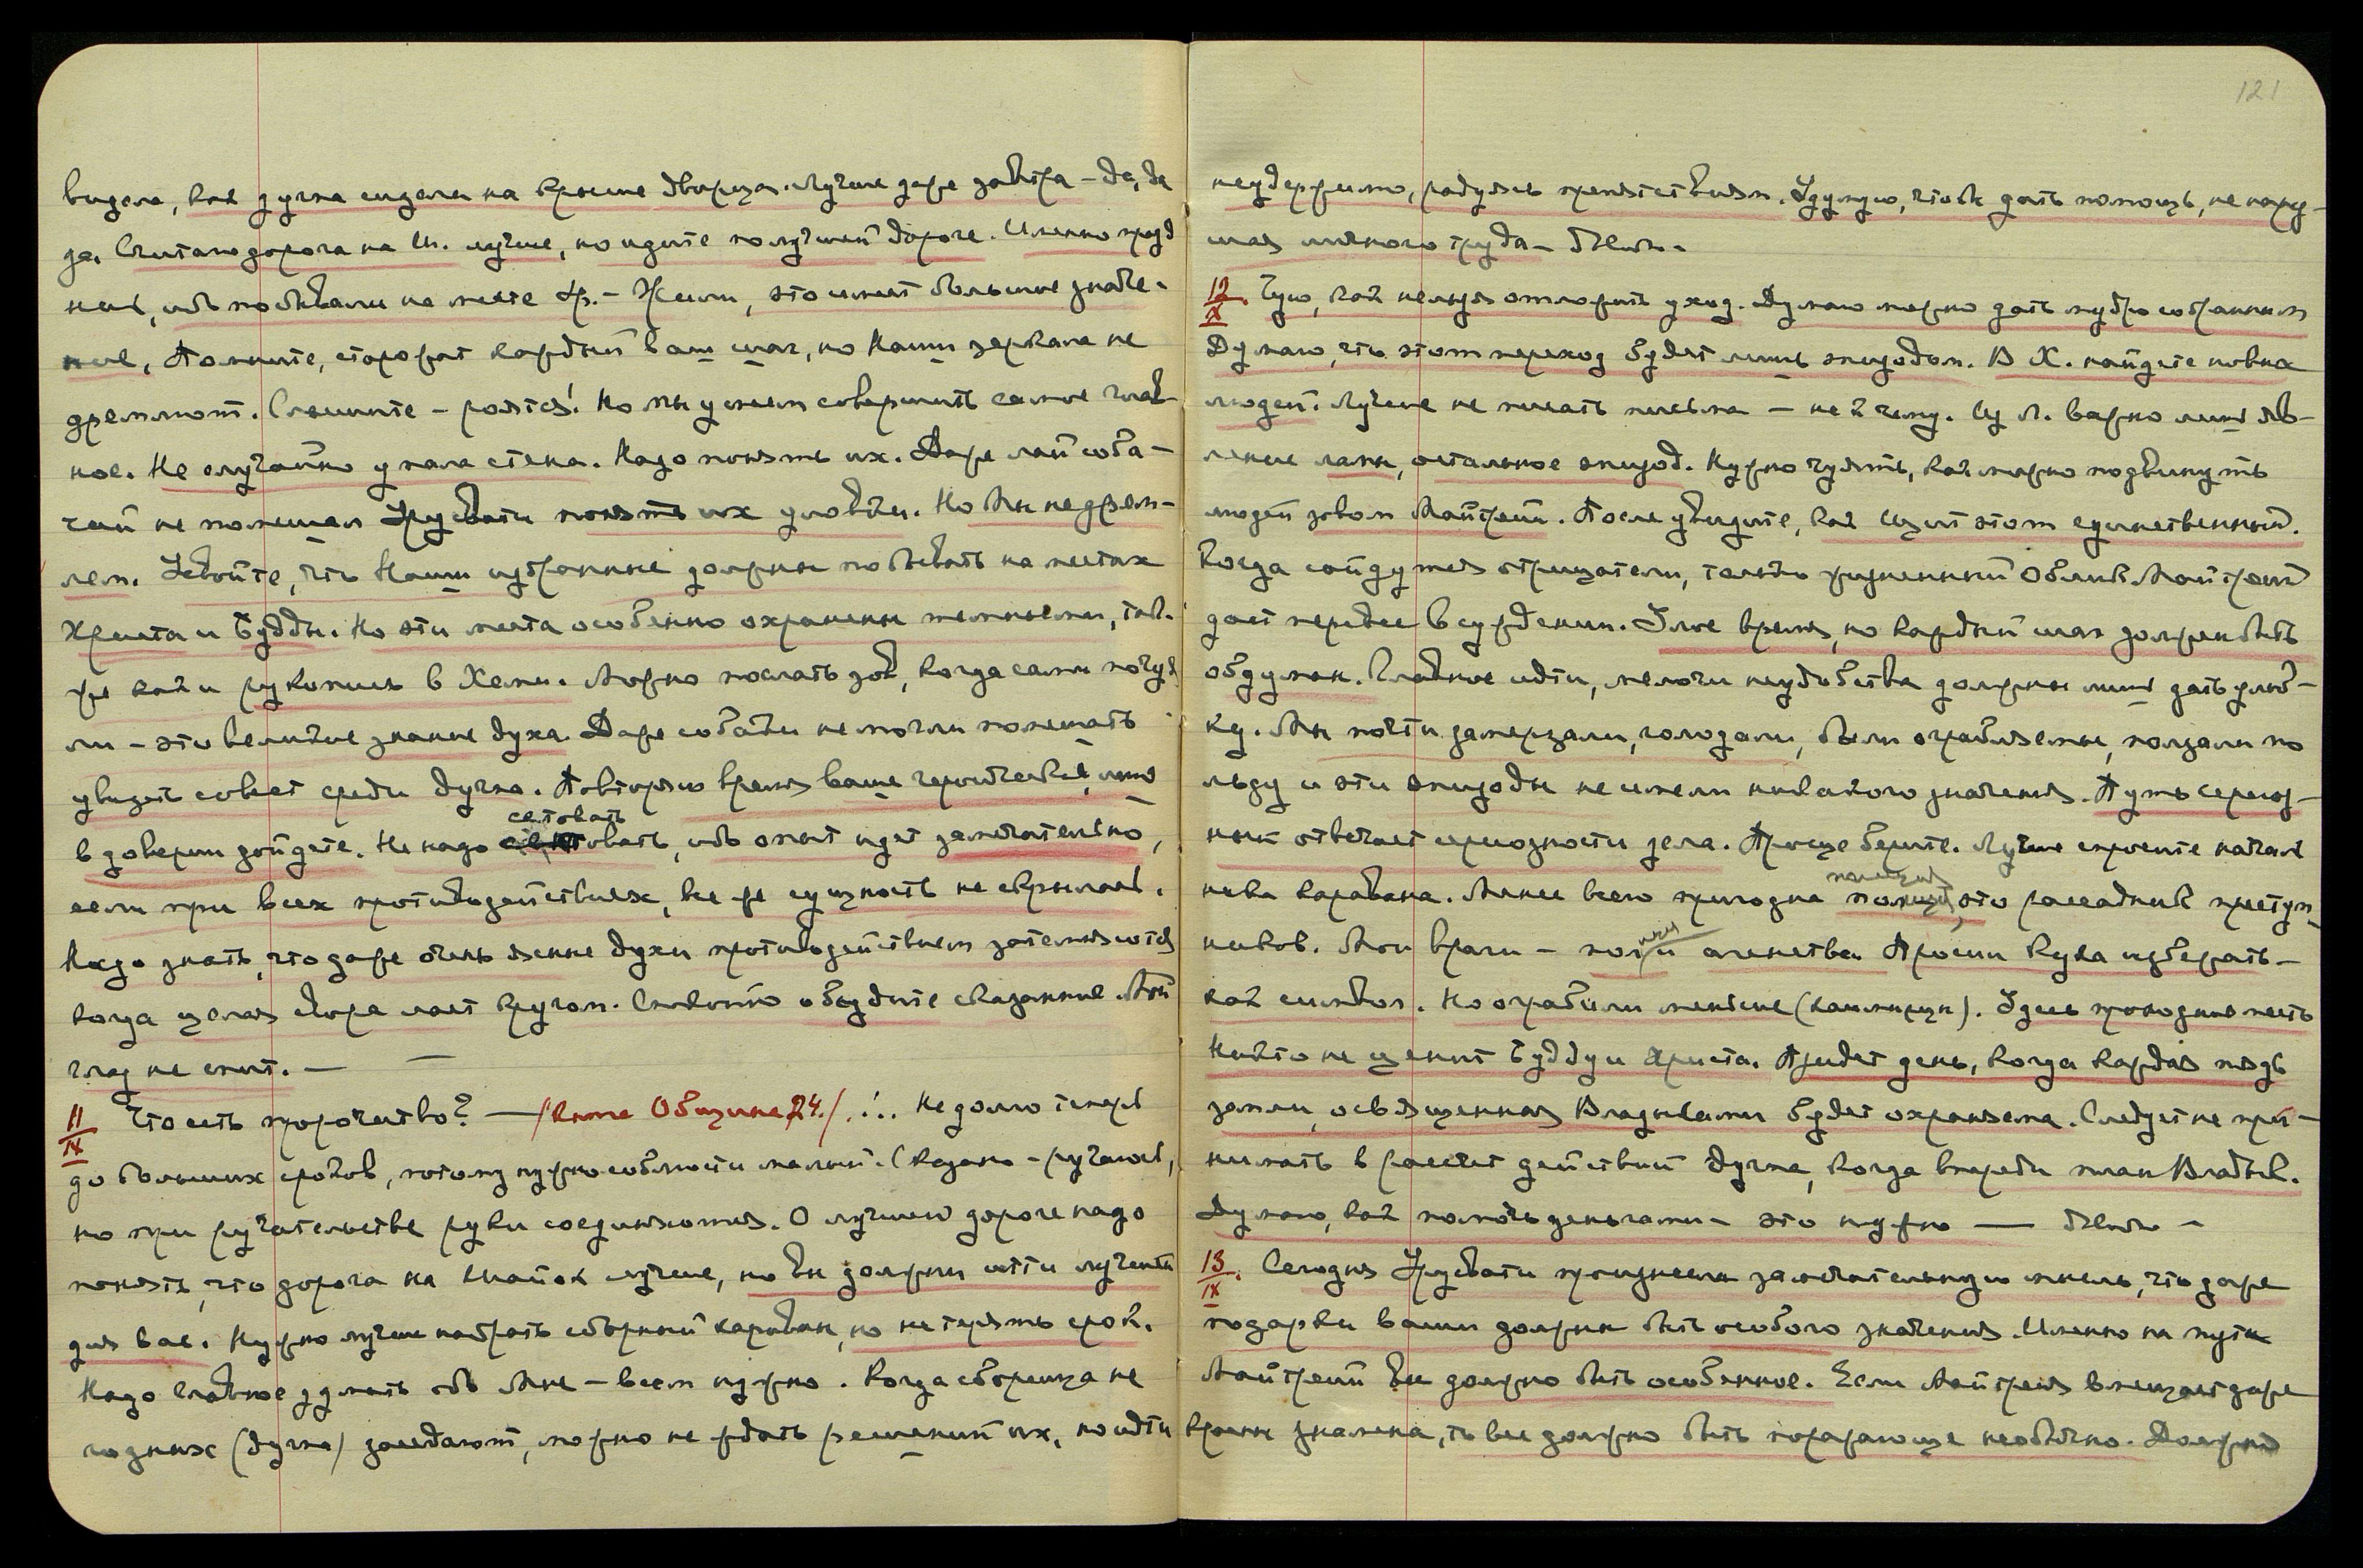 видела, как дугпа сидели на крыше дворца. Лучше даже завтра – да, да
да. Считаю дорога на Ш. лучше, но идите по лучшей дороге. Именно празд
ник, ибо побывали на месте Хр. – Хеми, это имеет большое значе-
ние. Помните, сторожат каждый ваш шаг, но Наши зеркала не
дремлют. Слышите – роятся! Но мы умеем совершить самое глав-
ное. Не случайно упала стена. Надо понять их. Даже лай соба-
чий не помешал Урусвати понять их уловки. Но Мы не дрем-
лем. Усвойте, что Наши избранные должны побывать на местах
Христа и Будды. Но эти места особенно охранены темными, так-
же как и рукопись в Хеми. Можно послать зов, когда сами почуя
ли – это великое знание духа. Даже собаки не могли помешать
увидеть совет среди дугпа. Повторяю время ваше героическое, лишь
в доверии дойдете. Не надо сетовать, ибо опыт идет замечательно,
если при всех противодействиях, все же сущность не скрылась.
Надо знать, что даже очень ясные духи противодействием затемняются
когда целая свора лает кругом. Спокойно обсудите сказанное. Мой
глаз не спит. — —
11/IX Что есть пророчество? — /Книга Община 24./ .:. Не долго теперь
до больших сроков, потому нужно соблюсти малый. Сказано – ручаюсь,
но при ручательстве руки соединяются. О лучшей дороге надо
понять, что дорога на Шайок лучше, но вы должны идти лучшей
для вас. Нужно лучше набрать сборный караван, но не терять срок.
Надо главное думать обо Мне – всем нужно. Когда сборища не
годных (дугпа) заседают, можно не ждать решений их, но идти
121
неудержимо, радуясь препятствиям. Удумую, чтобы дать помощь, не нару-
шая личного труда –
12/IX. Чую, как нельзя отложить уход. Думаю можно дать мудро собранным
Думаю, что этот переход будет лишь эпизодом. В Х. найдете новых
людей. Лучше не писать письма – не к чему. Из Л. важно лишь яв-
ление ламы, остальное эпизод. Нужно чуять, как можно подвинуть
людей зовом Майтрейи. После увидите, как щит этот единственный.
Когда сойдутся отрицатели, только жизненный Облик Майтрейи
дает перевес в суждении. Злое время, но каждый шаг должен быть
обдуман. Главное идти, мелочи неудобства должны лишь дать улыб-
ку. Мы почти замерзали, голодали, были ограбляемы, ползали по
льду и эти эпизоды не имели никакого значения. Путь серьоз-
ный отвечает серьозности дела. Проще берите. Лучше спросите начале
ника каравана. Менее всего пригодна полиция, это рассадник преступ
ников. Мои враги – попы и агенства. Просим Кука избегать –
как символ. Но ограбили меньшие (кашмирцы). Здесь проходимо месть
Никто не ценит Будду и Христа. Придет день, когда каждая пядь
земли, освященная Владыками будет охраняема. Следует не при-
нимать в рассчет действий дугпа, когда впереди план Владык.
Думаю, как помочь деньгами – это нужно —
13/IX. Сегодня Урусвати произнесла замечательную мысль, что даже
подарки ваши должны быть особого значения. Именно на пути
Майтрейи все должно быть особенное. Если Майтрейя вмещает даже
кроки знамена, то все должно быть поражающе необычно. Должно